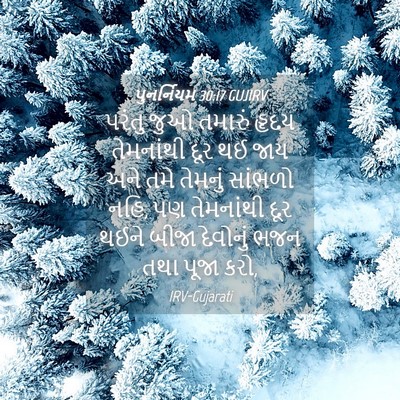 પુનર્નિયમ 30:17 GUJIRV
પરંતુ જુઓ તમારું હૃદય
તેમનાંથી દૂર થઈ જાય
અને તમે તેમનું સાંભળો
નહિ પણ તેમનાંથી દૂર
થઈને બીજા દેવોનું ભજન
તથા પૂજા કરો,
IRV-Gujarati